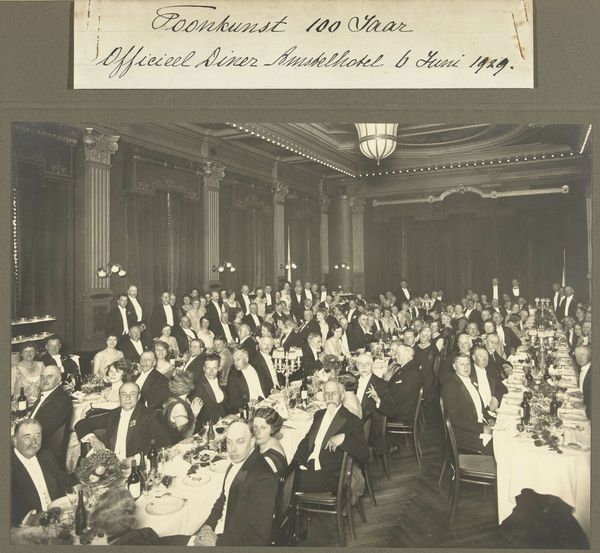 Toonkunst 100 Jaar
Officieel Diner Amstelhotel 6 Juni 1929.